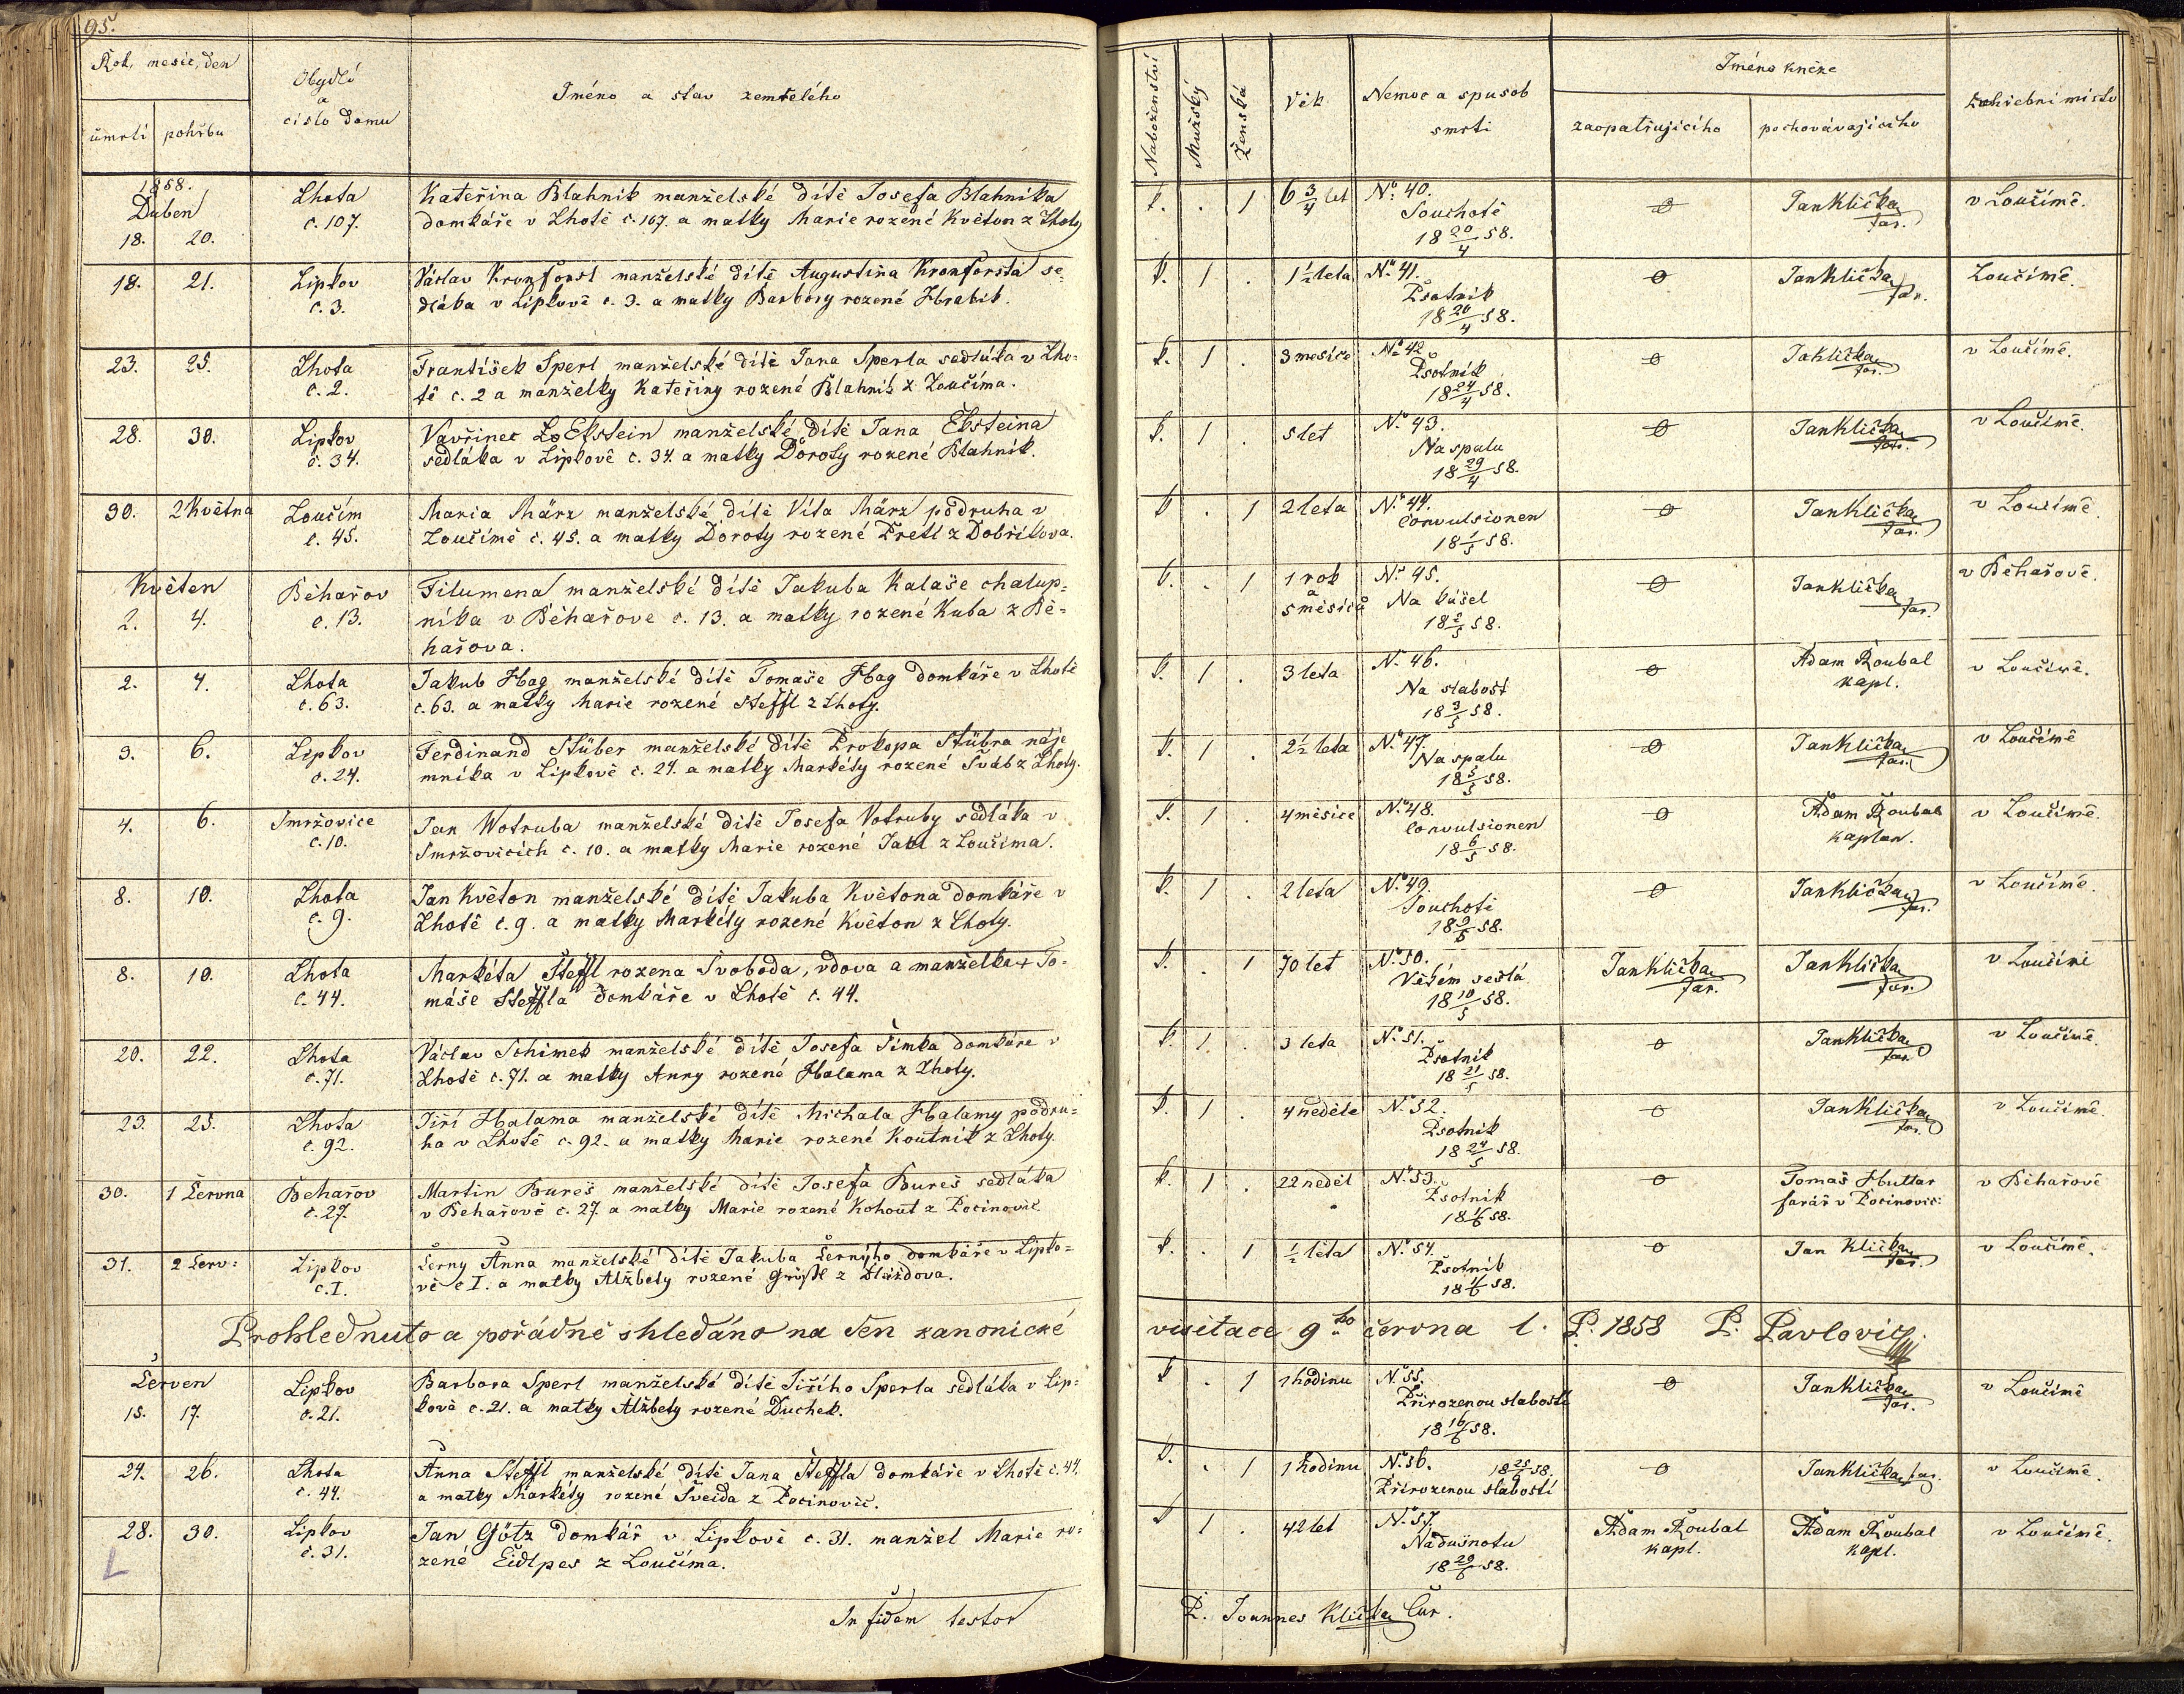 95.
Rok, mesic, den
Obydlí
a
cislo domu
Jméno a stav zemřelého
úmrtí pohřbu
1858.
Duben
18. 20.
Lhota
c. 107.
Kateřina Blahnik manželské dítě Josefa Blahnika
domkáře v Lhotě č. 107. a matky Marie rozené Květon z Lhoty
18. 21.
Lipkov
č. 3.
Václav Kronforst manželské dítě Augustina Kronforsta se-
dláka v Lipkově č. 3. a matky Barbory rozené Hrabik.
23. 25.
Lhota
č. 2.
František Sperl manželské dítě Jana Sperla sedláka v Lho-
tě č. 2 a manželky Kateřiny rozené Blahnik z Loučíma.
28. 30.
Lipkov
č. 34.
Vavřinec Ekstein manželské dítě Jana Eksteina
sedláka v Lipkově č. 34. a matky Doroty rozené Blahnik.
30. 2 Května
Loučim
č. 45.
Maria März manželské dítě Víta März podruha v
Loučímě č. 45. a matky Doroty rozené Pretl z Dobřikova.
Květen
2. 4.
Běhařov
č. 13.
Filumena manželské dítě Jakuba Kalaše chalup-
níka v Běhařove č. 13. a matky rozené Kuba z Bě-
hařova.
2. 4.
Lhota
č. 63.
Jakub Hag manželské dítě Tomaše Hag domkáře v Lhotě
č. 63. a matky Marie rozené Steffl z Lhoty.
3. 6.
Lipkov
č. 24.
Ferdinand Stüber manželské dítě Prokopa Stübra náje
mníka v Lipkově č. 24. a matky Markéty rozené Šváb z Lhoty.
4. 6.
Smržovice
č. 10.
Jan Wotruba manželské dítě Josefa Votruby sedláka v
Smržovicích č. 10. a matky Marie rozené z Loučima.
8. 10.
Lhota
č. 9.
Jan Květon manželské dítě Jakuba Květona domkáře v
Lhotě č. 9. a matky Markéty rozené Květon z Lhoty.
8. 10.
Lhota
č. 44.
Markéta Šteffl rozena Svoboda, vdova a manželka + To-
máše Steffla domkáře v Lhotě č. 44.
20. 22.
Lhota
č. 71.
Václav Schimek manželské dítě Josefa Šimka domkáře v
Lhotě č. 71. a matky Anny rozené Halama z Lhoty.
23. 25.
Lhota
č. 92.
Jiří Halama manželské dítě Michala Halamy podru-
ha v Lhotě č. 92. a matky Marie rozené Koutnik z Lhoty.
30. 1 Června
Behařov
č. 27.
Martin Bureš manželské dítě Josefa Bureš sedláka
v Behařově č. 27. a matky Marie rozené Kohout z Pocinovic
31. 2 Červ:
Lipkov
č. I.
Černy Anna manželské dítě Jakuba Černýho domkáře v Lipko-
vě č I. a matky Alžbety rozené z
Prohlednuto a pořádně shledáno na den kanonické
Červen
15. 17.
Lipkov
č. 21.
Barbora Sperl manželské dítě Jiřího Sperla sedláka v Lip-
kově č. 21. a matky Alžbety rozené Duchek.
24. 26.
Lhota
č. 44.
Anna Steffl manželské dítě Jana Šteffla domkáře v Lhotě č. 44.
a matky Markéty rozené Sveida z Pocinovic.
28. 30.
Lipkov
č. 31.
Jan Götz domkář v Lipkově č. 31. manžel Marie ro-
zené Eidlpes z Loučíma.
L
In fidem testor
Naboženství
Mužský
Ženská
Věk
Nemoc a spusob
smrti
Jméno kněze
zaopatřujicího
pochovávajiciho
zahřebni misto
k. . 1 6 3/4 let Nº 40.
Souchotě
18 20/4 58.
0 Jan Klička
far.
v Loučímě.
k. 1 . 1 1/2 leta Nº 41.
Psotnik
18 20/4 58.
0 Jan Klička
far.
Loučímě.
k. 1 . 3 mesice Nº 42.
Psotnik
18 24/4 58.
0 Jaklička
far.
v Loučímě.
k. 1 . 5 let Nº 43.
Na spalu
18 29/4 58.
0 Jan Klička
far.
v Loučímě.
k . 1 2 leta Nº 44.
Convulsionen
18 1/5 58.
0 Jan Klička
far.
v Loučímě
k. . 1 1 rok
a
5 měsíců
Nº 45.
Na kašel
18 2/5 58.
0 Jan Klička
far.
v Běhařově.
k. 1 . 3 leta Nº 46.
Na slabost
18 3/5 58.
0 Adam Roubal
kapl.
v Loučímě.
k. 1 . 2 1/2 leta Nº 47.
Na spalu
18 5/5 58.
0 Jan Klička
far.
v Loučímě
k. 1 . 4 měsice Nº 48.
Convulsionen
18 6/5 58.
0 Adam Roubal
kaplan.
v Loučímě.
k. 1 . 2 leta Nº 49.
Souchoti
18 9/5 58.
0 Jan Klička
far.
v Loučímě.
k. . 1 70 let Nº 50.
Věkem sešlá
18 10/5 58.
Jan Klička
far.
Jan Klička
far.
v Loučímě
k. 1 . 3 leta Nº 51.
Psotnik
18 21/5 58.
0 Jan Klička
far.
v Loučímě.
k. 1 . 4 neděle Nº 52.
Psotnik
18 24/5 58.
0 Jan Klička
far.
v Loučímě.
k. 1 . 22 neděl Nº 53.
Psotnik
18 1/6 58.
0 Tomaš Huttar
farář v Pocinovic:
v Běhařově
k. . 1 1/2 léta Nº 54.
Psotnik
18 1/6 58.
0 Jan Klička
far.
v Loučímě.
visitace 9ho června l. P. 1858 P. Pavlovic
k . 1 1 hodinu Nº 55.
Přirozenou slabostí
18 16/6 58.
0 Jan Klička
far.
v Loučímě
k. . 1 1 hodinu Nº 56. 18 25/6 58.
Přirozenou slabostí
0 Jan Klička far.
v Loučímě.
k 1 . 42 let Nº 57.
Nadušnotu
18 29/6 58.
Adam Roubal
kapl.
Adam Roubal
kapl.
v Loučímě.
P. Joannes Klička Cur.